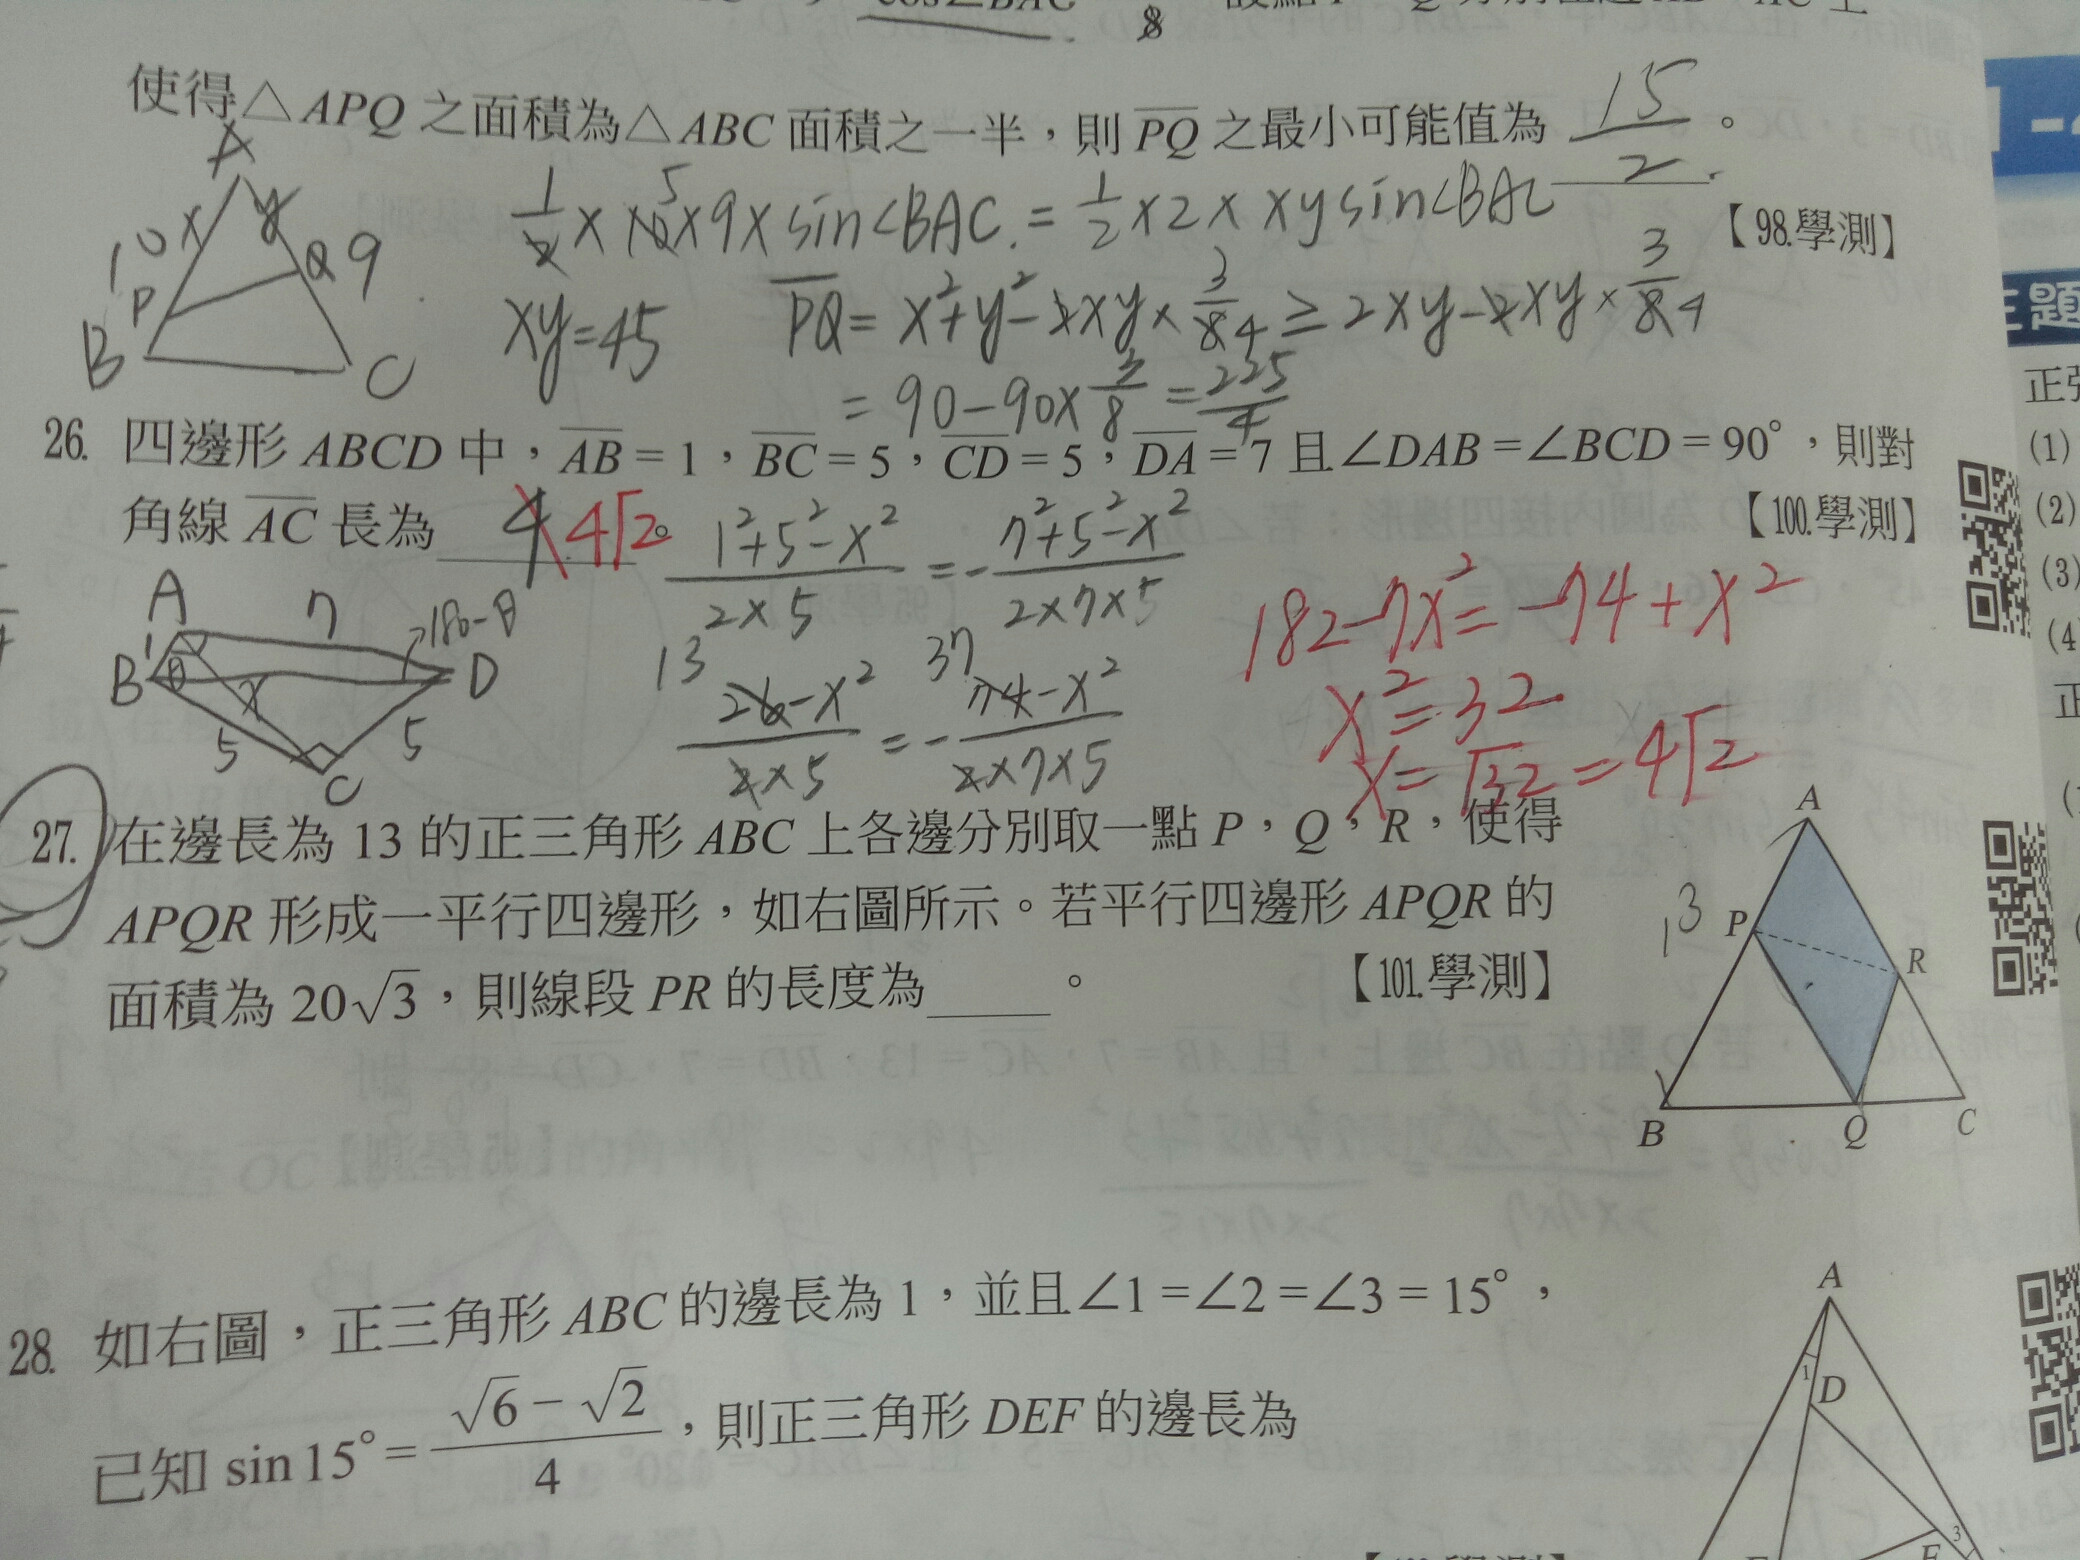 使得△APQ 之面積為△ABC 面積之一半，則 PQ 之最小可能值為 15/2 。
【98.學測】
A
x y
10 P Q 9
B C
1/2 × 10 5 × 9 × sin∠BAC = 1/2 × 2 × xy sin∠BAC
xy=45
PQ = x²+y²-2xy × 3/8 4 ≥ 2xy-2xy × 3/8 4
= 90-90× 3/8 = 225/4
26. 四邊形 ABCD 中，AB = 1，BC = 5，CD = 5，DA = 7 且∠DAB =∠BCD = 90°，則對
角線 AC 長為 4 4√2 。
【100.學測】
A 7 180-θ
B 1 θ x D
5 5
C
(1²+5²-x²)/(2×5) = -(7²+5²-x²)/(2×7×5)
13 37
(26-x²)/(2×5) = -(74-x²)/(2×7×5)
182-7x²=-74+x²
x²=32
x=√32=4√2
27. 在邊長為 13 的正三角形 ABC 上各邊分別取一點 P，Q，R，使得
APQR 形成一平行四邊形，如右圖所示。若平行四邊形 APQR 的
面積為 20√3，則線段 PR 的長度為 。
【101.學測】
A
13
P
R
B Q C
28. 如右圖，正三角形 ABC 的邊長為 1，並且∠1 =∠2 =∠3 = 15°，
已知 sin15°= (√6 − √2)/4，則正三角形 DEF 的邊長為
A
1
D
3
(1)
(2)
(3)
(4